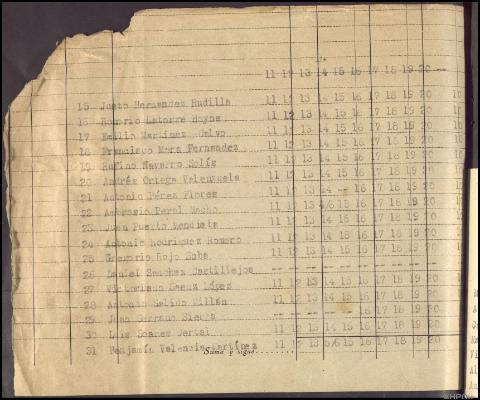 11 12 13 14 15 16 17 18 19 20
15 Justo Hernandez Rudilla 11 12 13 14 15 16 17 18 19 20 10
16 Honorio Latorre Hoyos 11 12 13 14 15 16 17 18 19 20 10
17 Emilio Martinez Calvo 11 12 13 14 15 16 17 18 19 20 10
18 Francisco Mora Fernandez 11 12 13 14 15 16 17 18 19 20 10
19 Rufino Navarro Solís 11 12 13 14 15 16 17 18 19 20 10
20 Andrés Ortega Valenzuela 11 12 13 14 15 16 17 18 19 20 10
21 Antonio Pérez Flores 11 12 13 14 -- 16 17 18 19 20 10
22 Ambrosio Peral Macho 11 12 13 16 17 18 19 20 10
23 Juan Puerto Mendieta 11 12 13 14 15 16 17 18 19 20 10
24 Antonio Rodriguez Romero 11 12 13 14 15 16 17 18 19 20 10
25 Gregorio Rojo Soba 11 12 13 14 15 16 17 18 19 20 10
26 Daniel Sanchez Castillejos -- -- -- -- -- -- -- -- -- --
27 Victoriano Saenz López 11 12 13 14 15 16 17 18 19 20 10
28 Antonio Millán 11 12 13 14 15 16 17 18 19 20
29 Juan Serrano Sierra -- -- -- -- -- 16 17 18 19 20
30 Luis Soares 11 12 13 14 15 16 17 18 19 20
31 Benjamín Valencia Martínez 11 12 13 5/6 15 16 17 18 19 20
Suma y sigue........